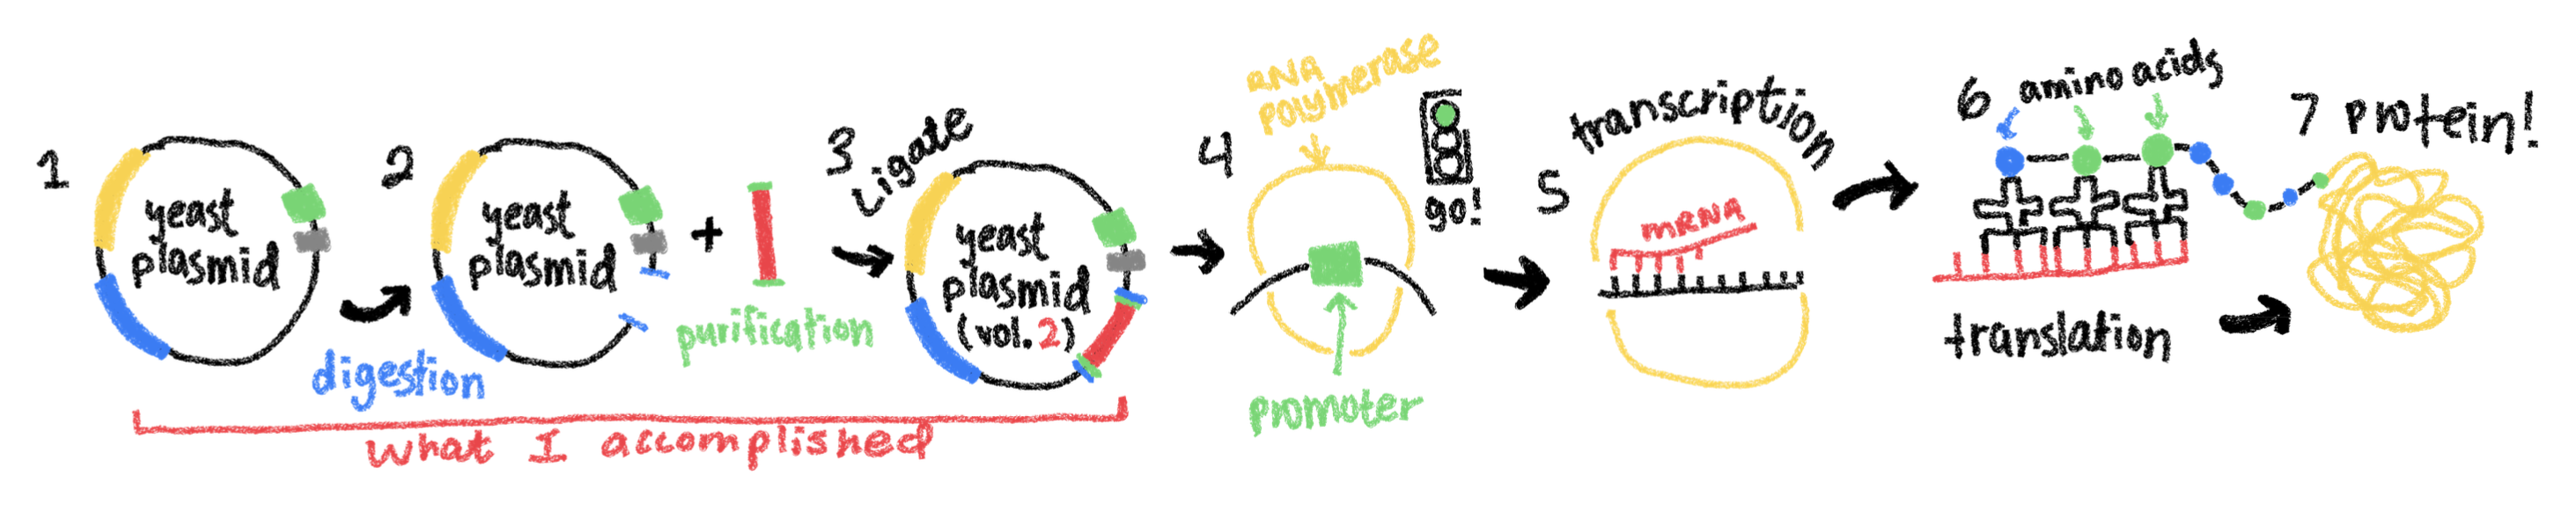 1
yeast
plasmid
digestion
2
yeast
plasmid
+
purification
3
Ligate
yeast
plasmid
(vol. 2)
what I accomplished
4
RNA
polymerase
go!
promoter
5
transcription
mRNA
6
amino acids
translation
7 protein!